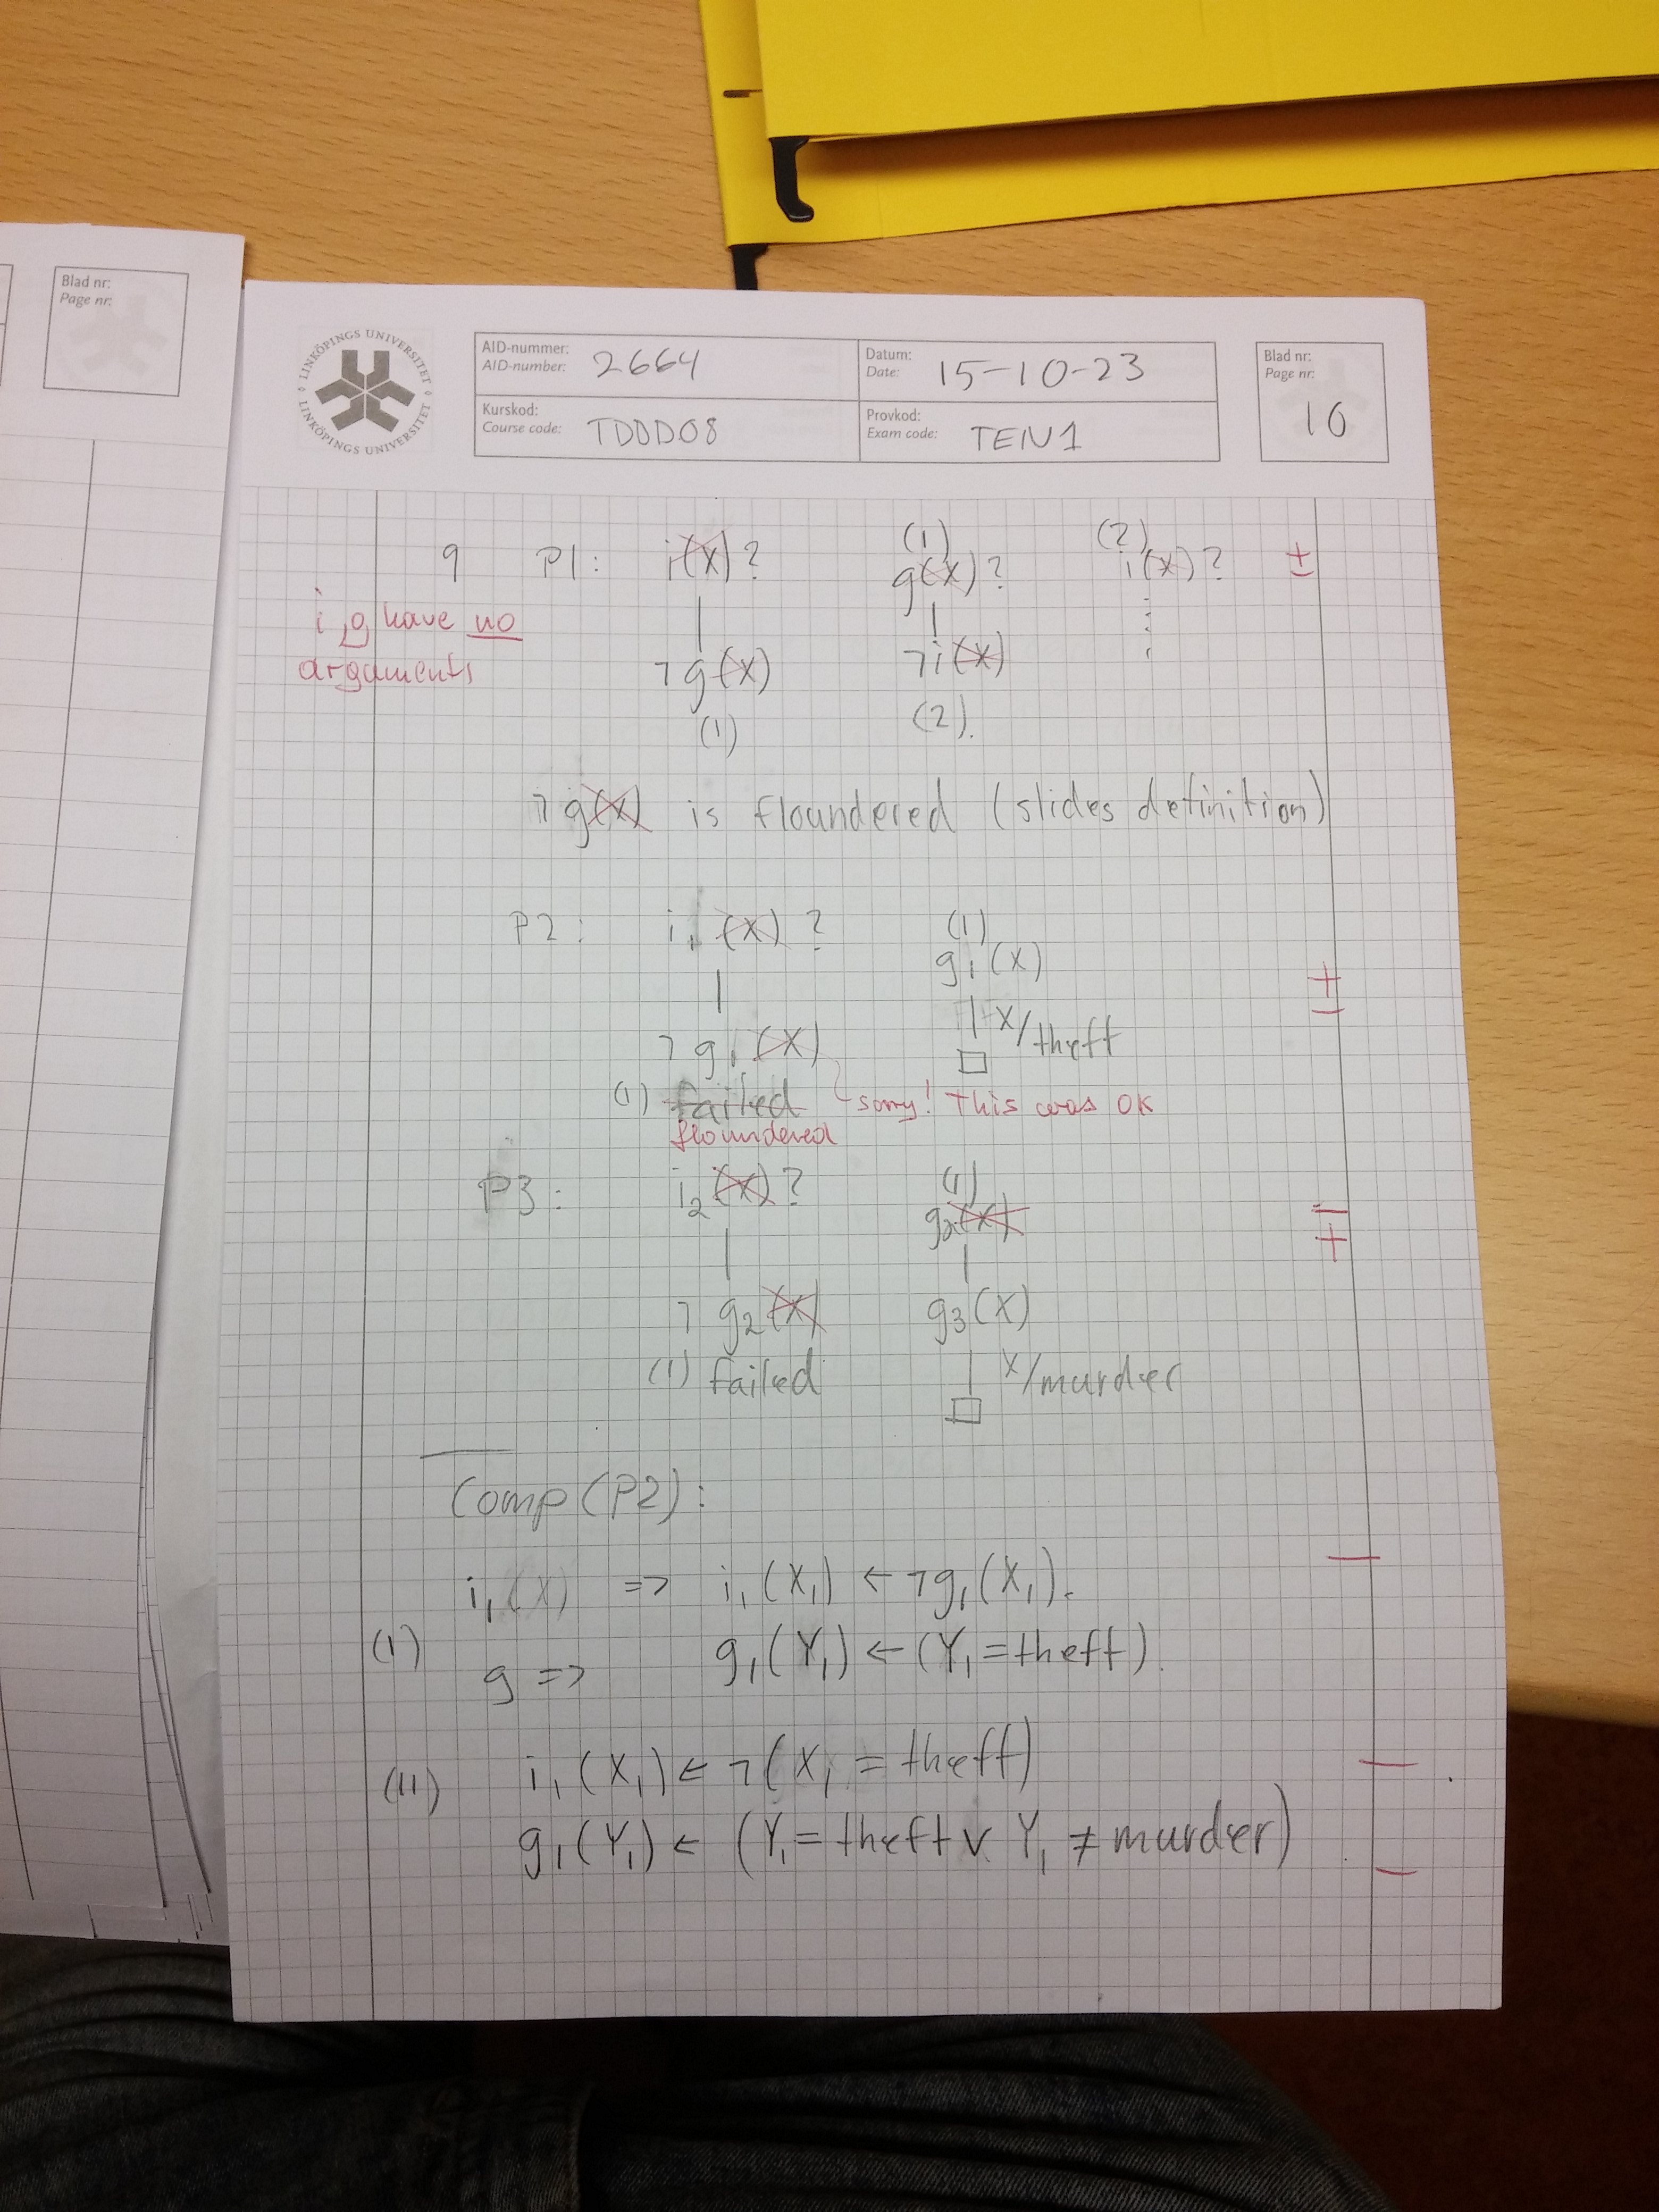 Blad nr:
Page nr:
LINKÖPINGS UNIVERSITET
LINKÖPINGS UNIVERSITET
AID-nummer:
AID-number: 2664
Datum:
Date: 15-10-23
Blad nr:
Page nr:
10
Kurskod:
Course code: TDDD08
Provkod:
Exam code: TEN1
(1) (2)
9 P1: i(X)? g(X)? i(X)? ±
i, g have no
arguments
¬g(X) ¬i(X)
(1) (2).
¬g(X) is floundered (slides definition)
P2: i₁(X)? (1)
g₁(X)
±
X/theft
¬g₁(X) □
(1) failed sorry! This was OK
floundered
P3: i₂(X)? (1)
g₂(X)
∓
¬g₂(X) g₃(X)
(1) failed X/murder
□
Comp(P2):
i₁(X) => i₁(X₁) ← ¬g₁(X₁). −
(I)
g => g₁(Y₁) ← (Y₁ = theft).
(II) i₁(X₁) ← ¬(X₁ = theft) −
g₁(Y₁) ← (Y₁ = theft ∨ Y₁ ≠ murder) −